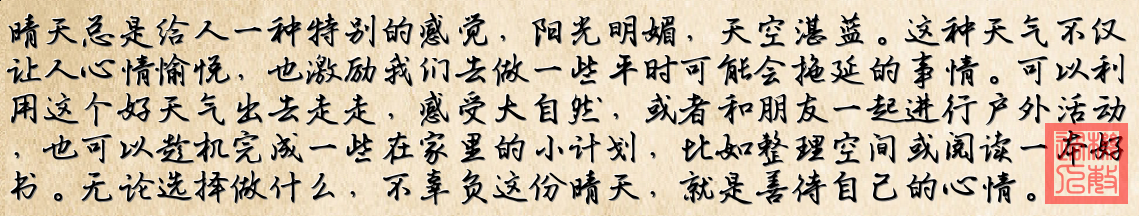 晴天总是给人一种特别的感觉，阳光明媚，天空湛蓝。这种天气不仅
让人心情愉悦，也激励我们去做一些平时可能会拖延的事情。可以利
用这个好天气出去走走，感受大自然，或者和朋友一起进行户外活动
，也可以趁机完成一些在家里的小计划，比如整理空间或阅读一本好
书。无论选择做什么，不辜负这份晴天，就是善待自己的心情。